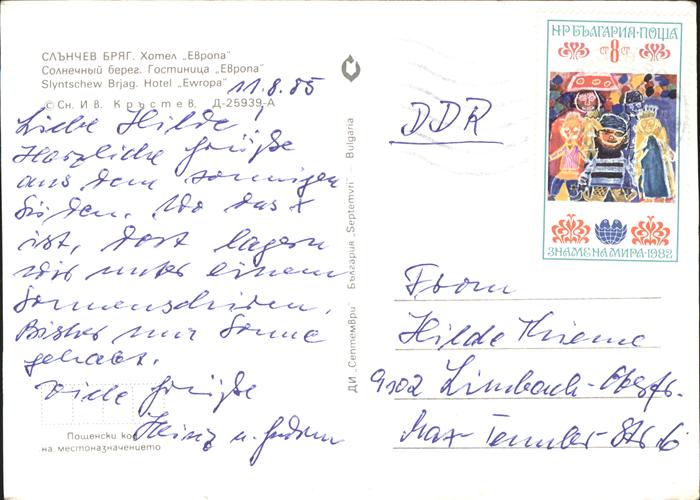 СЛЪНЧЕВ БРЯГ. Хотел „Европа"
Солнечный берег. Гостиница „Европа"
Slyntschew Brjag. Hotel „Ewropa"
© Сн. И в. К р ъ с т е в Д-25939-А
11.8.85
Liebe Hilde!
Herzliche Grüße
aus dem sonnigen
Süden. Wo das X
ist, dort lagern
wir unter einem
Sonnenschirm.
Bisher nur Sonne
gehabt.
Viele Grüße
Heinz u.
Пощенски ко
на местоназначението
ДИ „Септември" България „Septemvri" Bulgaria
НР БЪЛГАРИЯ·ПОЩА
8 СТ
ЗНАМЕ НА МИРА·1982
DDR
Hilde Thieme
9102 Limbach-Obfr.
Max- Str. 6